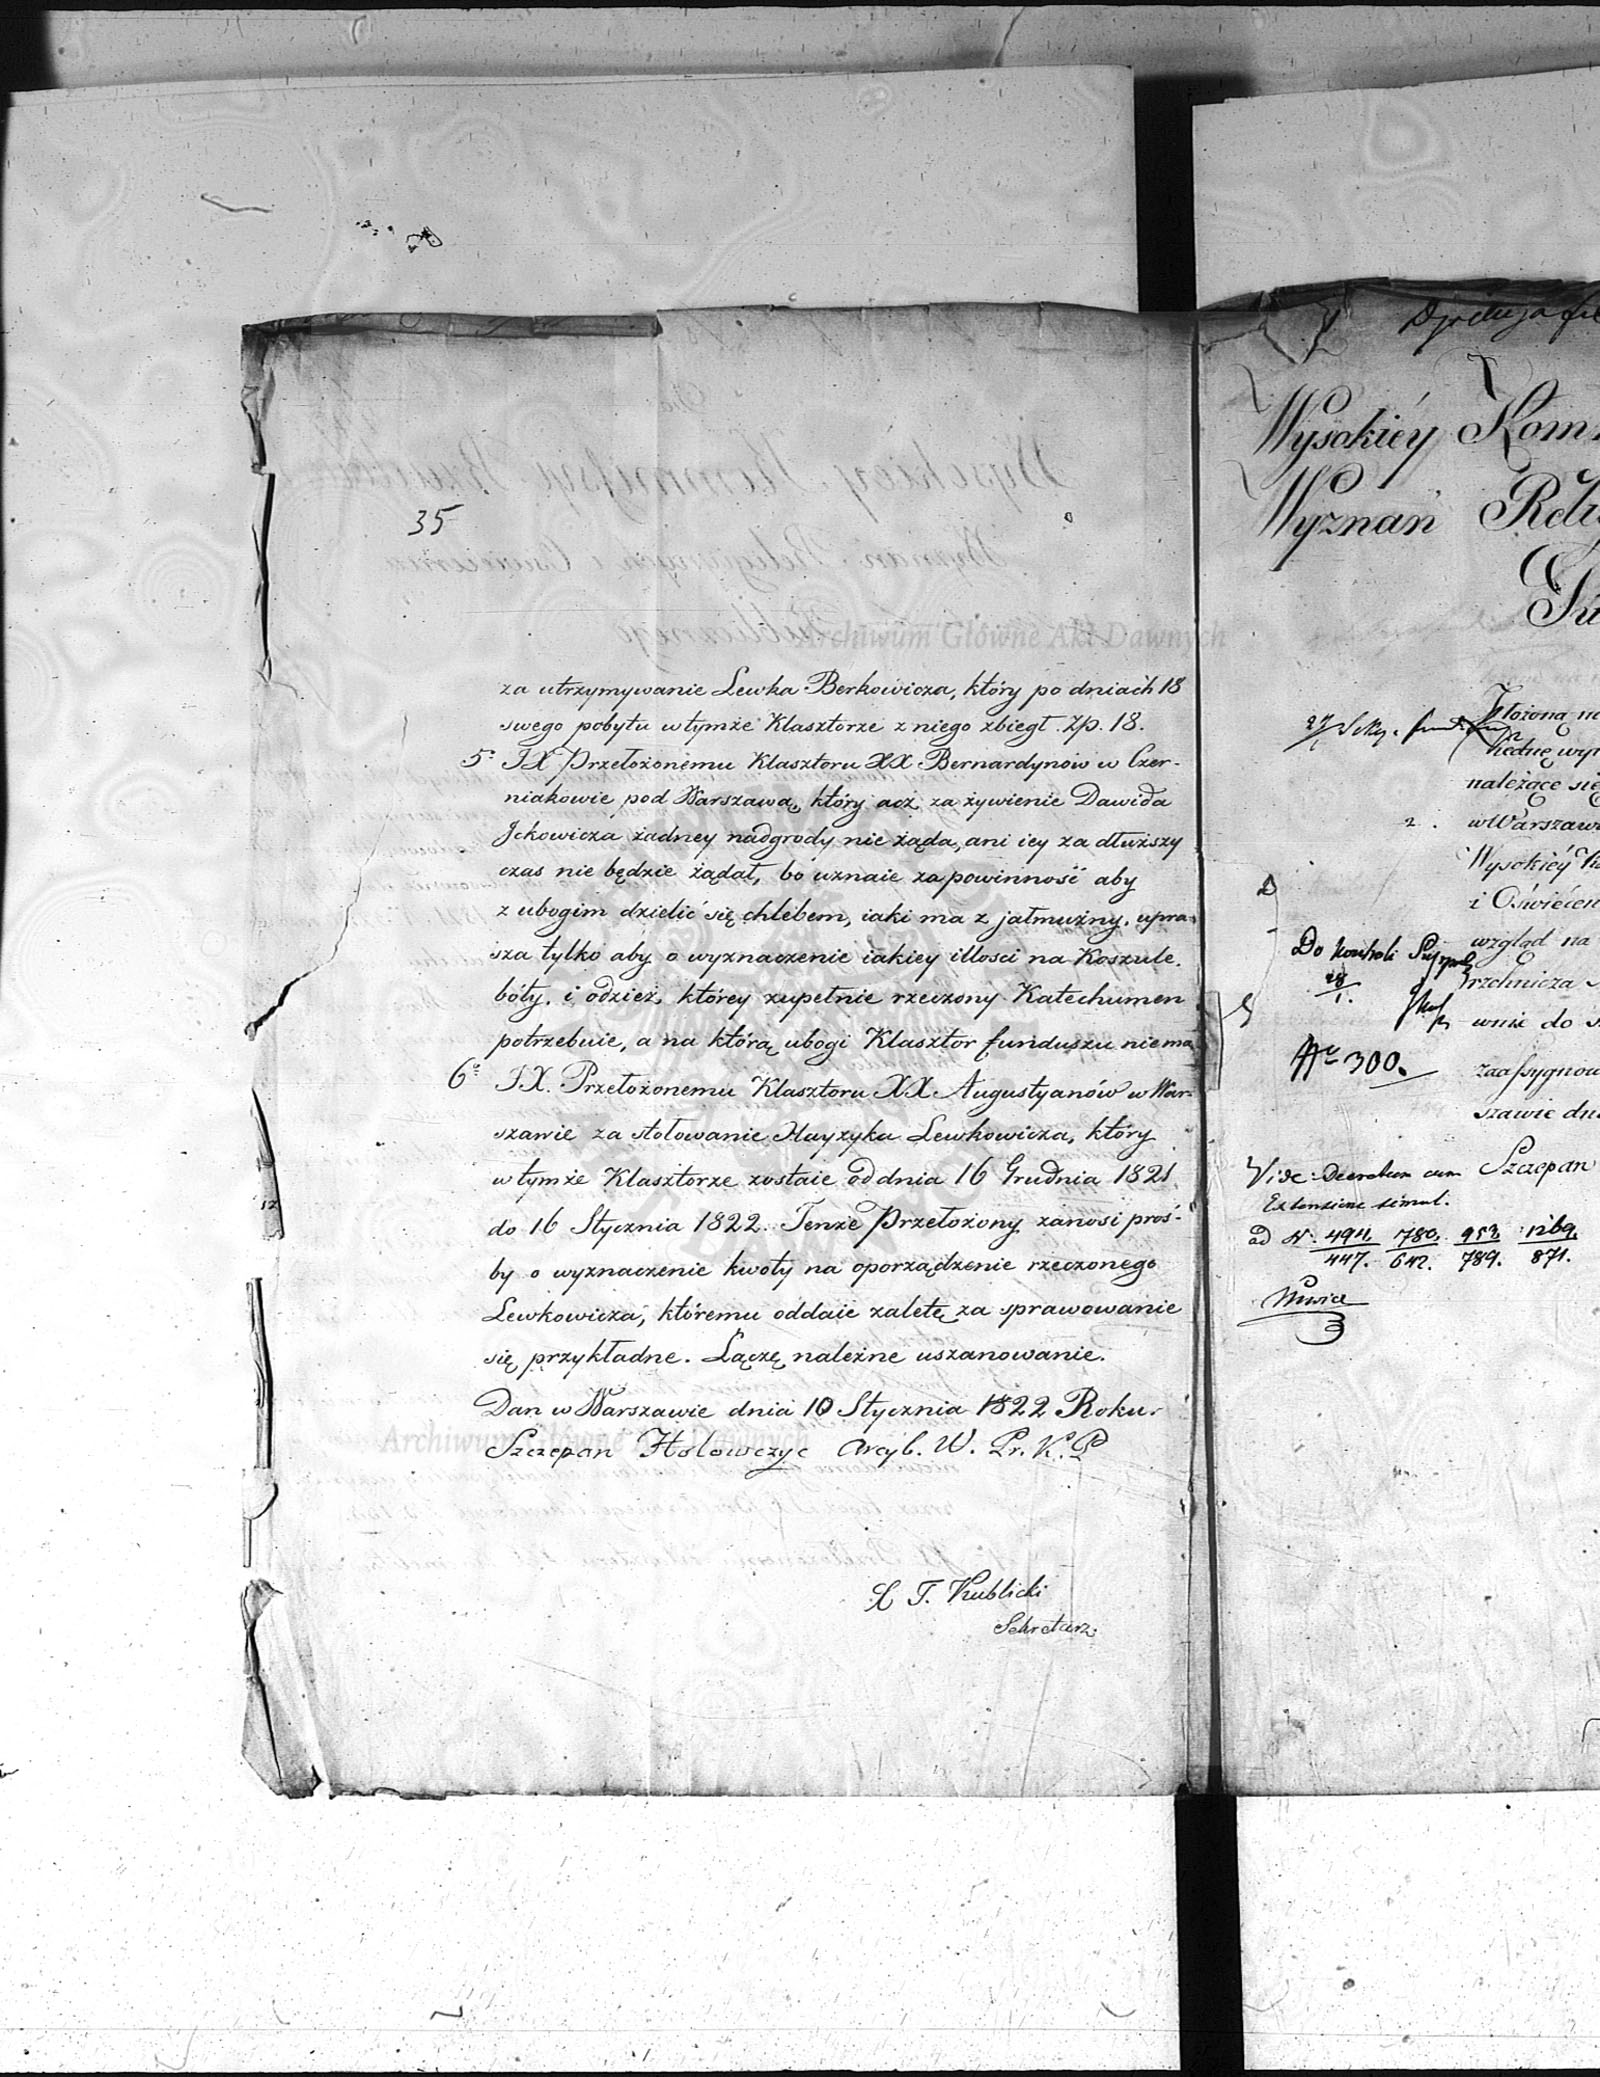 35
za utrzymywanie Lewka Berkowicza, który po dniach 18
swego pobytu w tymże Klasztorze z niego zbiegł. Zp. 18.
5º JX Przełożonemu Klasztoru XX Bernardynów w Czer-
niakowie pod Warszawą, który acz za żywienie Dawida
Jckowicza żadney nadgrody nie żąda, ani iey za dłuższy
czas nie będzie żądał, bo uznaie za powinność aby
z ubogim dzielić się chlebem, iaki ma z jałmużny. upra-
sza tylko aby o wyznaczenie iakiey illości na Koszule.
bóty. i odzież, którey zupełnie rzeczony Katechumen
potrzebuie, a na którą ubogi Klasztor funduszu niema
6º J.X. Przełożonemu Klasztoru XX Augustyanów w War-
szawie za stołowanie Hayzyka Lewkowicza, który
w tymże Klasztorze zostaie od dnia 16 Grudnia 1821
do 16 Stycznia 1822. Tenże Przełożony zanosi proś-
by o wyznaczenie kwoty na oporządzenie rzeczonego
Lewkowicza, któremu oddaie zaletę za sprawowanie
się przykładne. Łączę należne uszanowanie.
Dan w Warszawie dnia 10 Stycznia 1822 Roku.
Szczepan Hołowczyc Arcyb. W. Pr. K. P
X T. Kublicki
Sekretarz.
12
Wysokiéy Kom
Wyznań Reli
Złożoną
należące się
2. w Warszaw
Wysokiéy
i Oświécen
Do Kontroli
względ na
wnie do
No 300.
zaassygnow
szawie dn
Szczepan
Vide Decretum cum
Extensione simul.
ad N. 494. 780. 953. 1269.
447. 642. 789. 871.
Archiwum Główne Akt Dawnych
Archiwum Główne Akt Dawnych